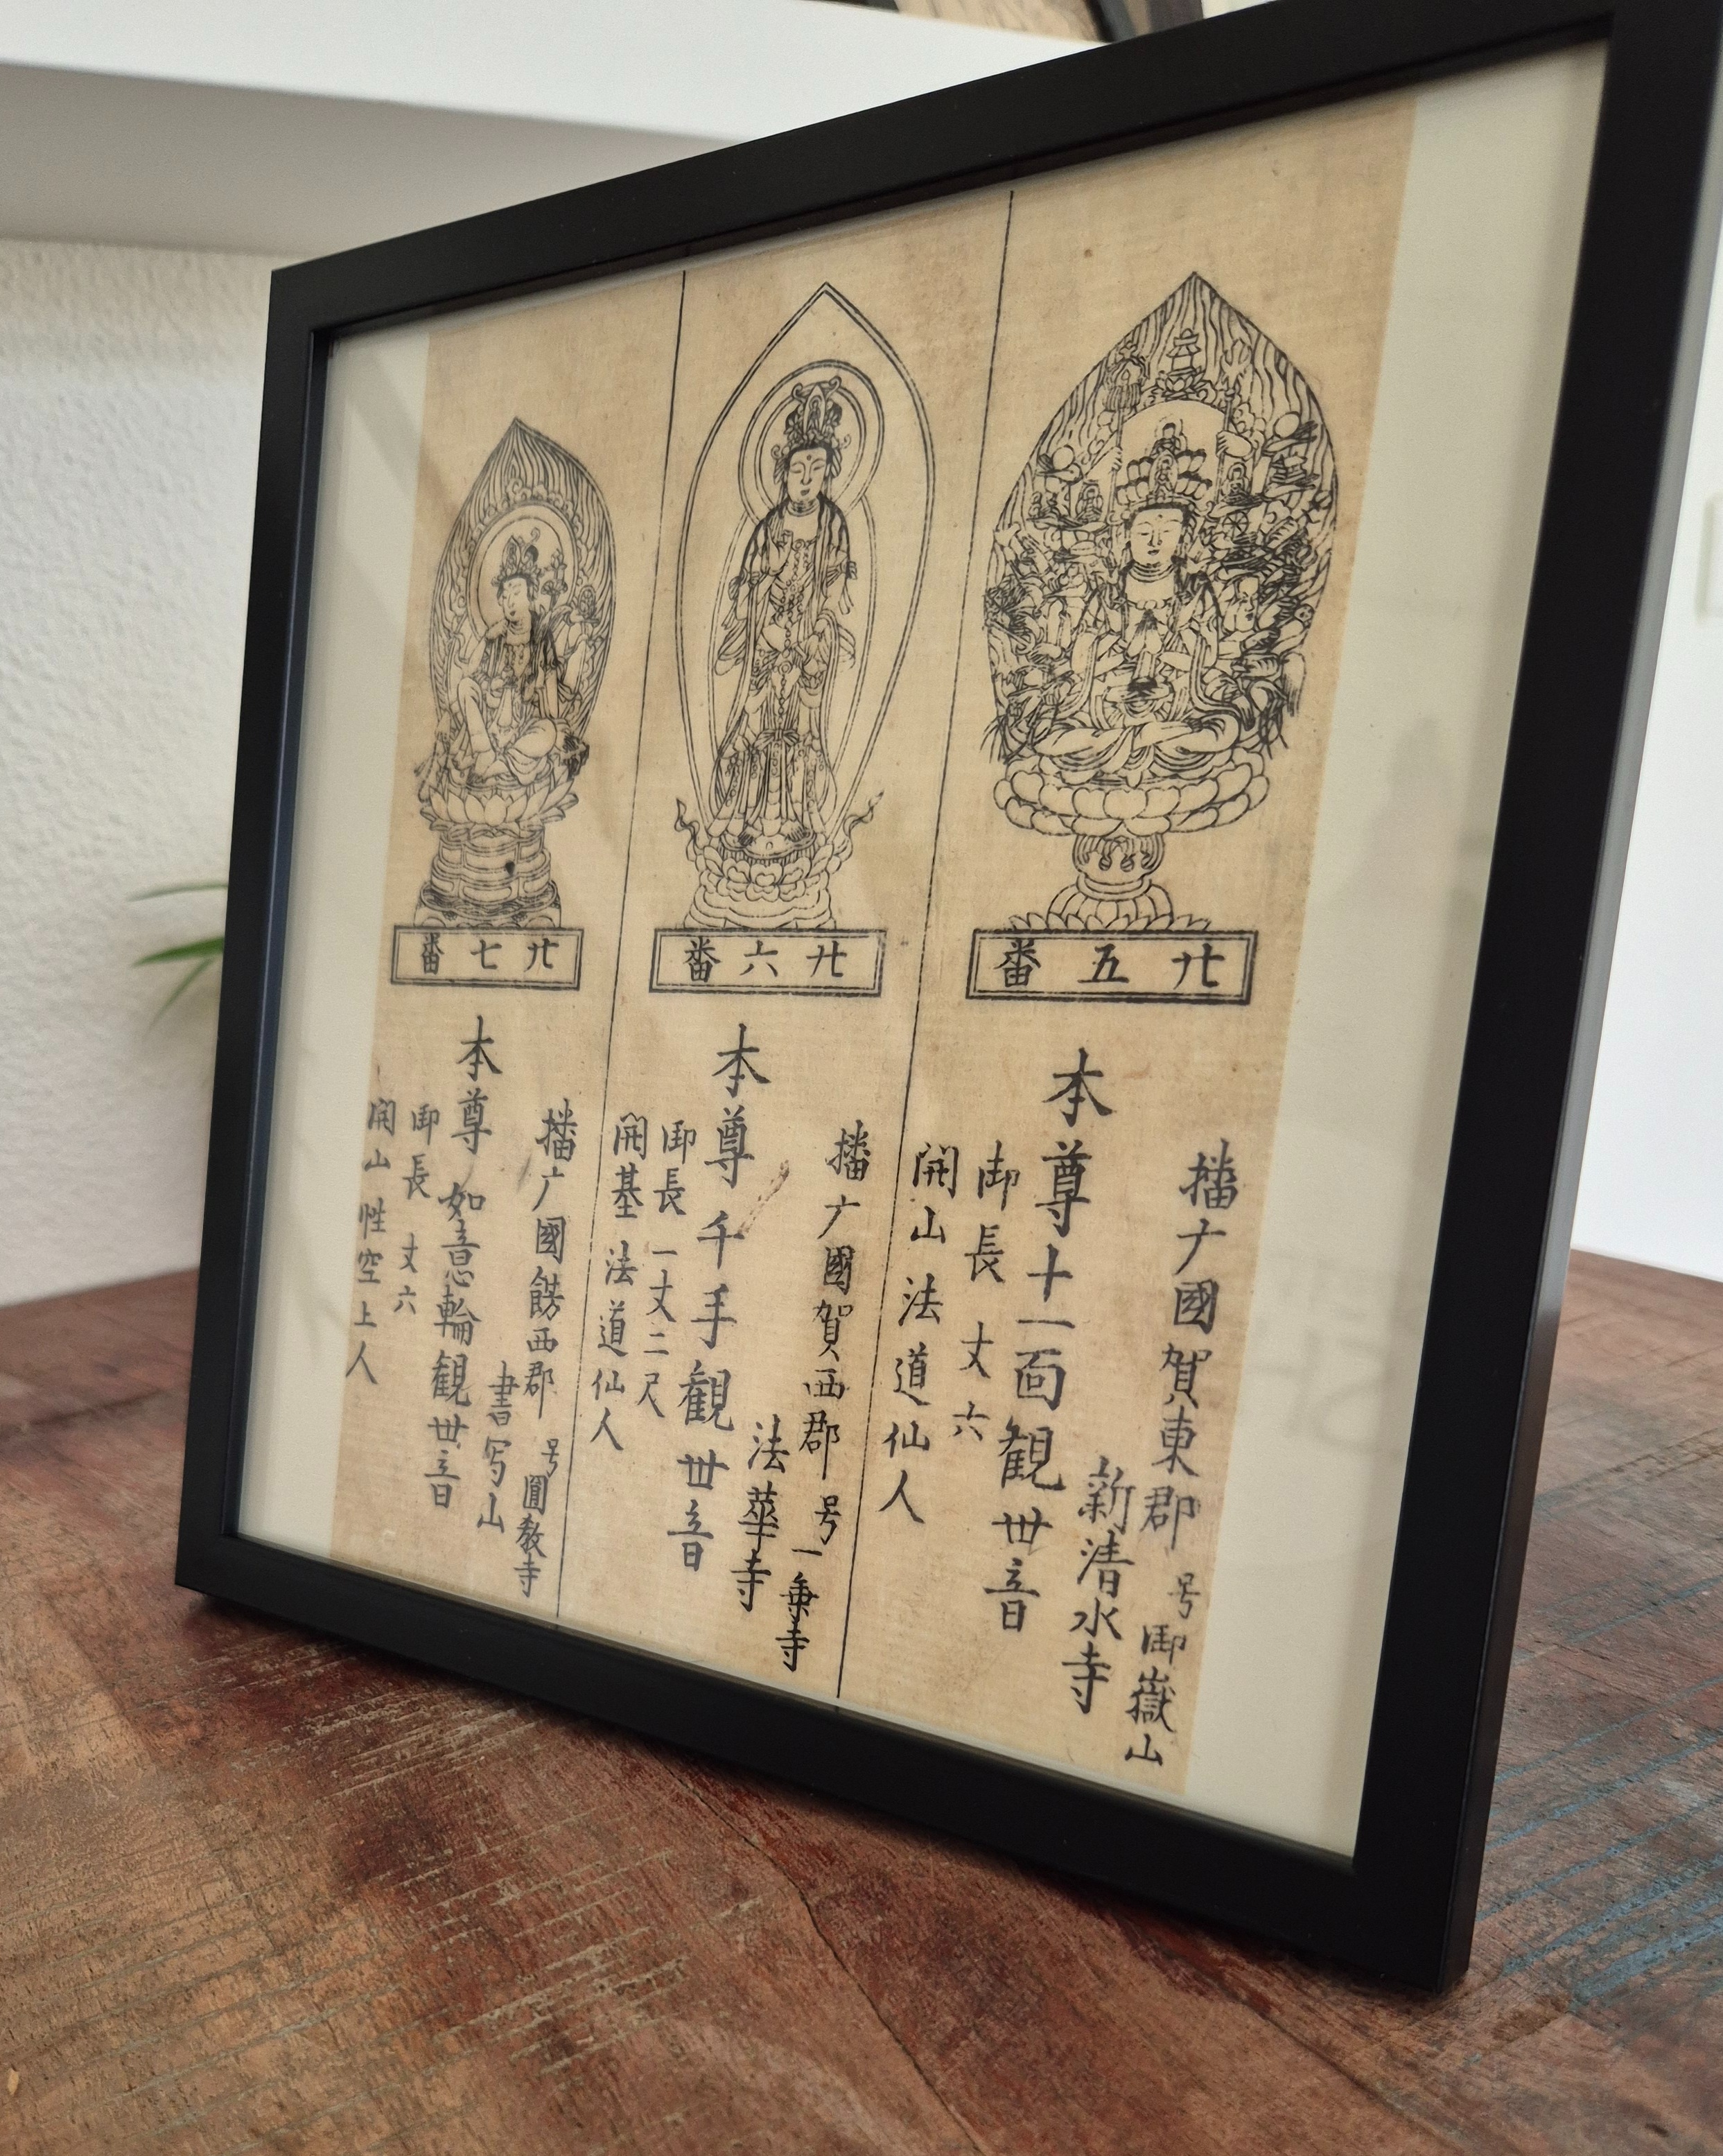 番五廿
播广國賀東郡
号御嶽山
新清水寺
本尊十一面観世音
御長 丈六
開山 法道仙人
番六廿
播广國賀西郡
号一乗寺
法華寺
本尊 千手観世音
御長 一丈二尺
開基 法道仙人
番七廿
播广國餝西郡
号圓教寺
書写山
本尊 如意輪観世音
御長 丈六
開山 性空上人